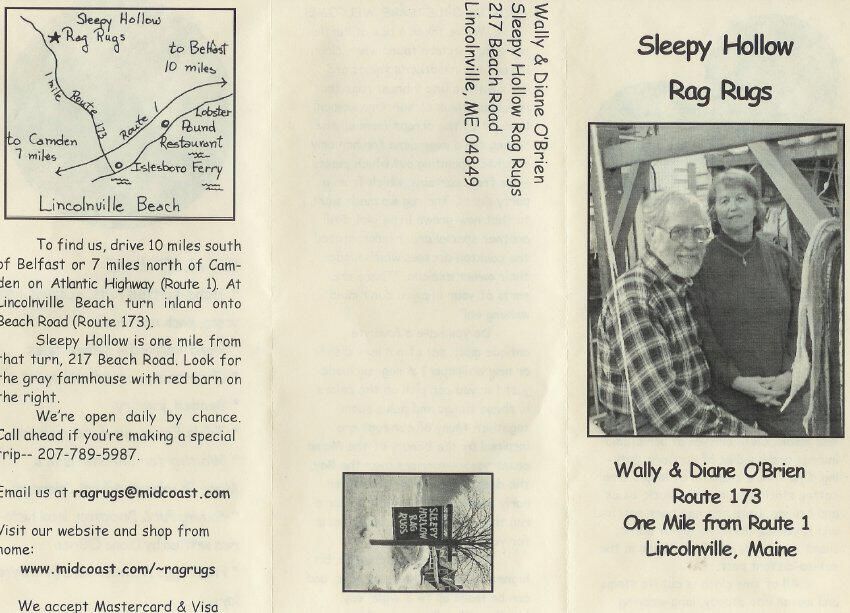 Sleepy Hollow
Rag Rugs
to Belfast
10 miles
1 mile
Route 173
Route 1
Lobster
Pound
Restaurant
to Camden
7 miles
Islesboro Ferry
Lincolnville Beach
To find us, drive 10 miles south
of Belfast or 7 miles north of Cam-
den on Atlantic Highway (Route 1). At
Lincolnville Beach turn inland onto
Beach Road (Route 173).
Sleepy Hollow is one mile from
that turn, 217 Beach Road. Look for
the gray farmhouse with red barn on
the right.
We're open daily by chance.
Call ahead if you're making a special
trip-- 207-789-5987.
Email us at ragrugs@midcoast.com
Visit our website and shop from
home:
www.midcoast.com/~ragrugs
We accept Mastercard & Visa
Wally & Diane O'Brien
Sleepy Hollow Rag Rugs
217 Beach Road
Lincolnville, ME 04849
SLEEPY
HOLLOW
RAG
RUGS
Sleepy Hollow
Rag Rugs
Wally & Diane O'Brien
Route 173
One Mile from Route 1
Lincolnville, Maine